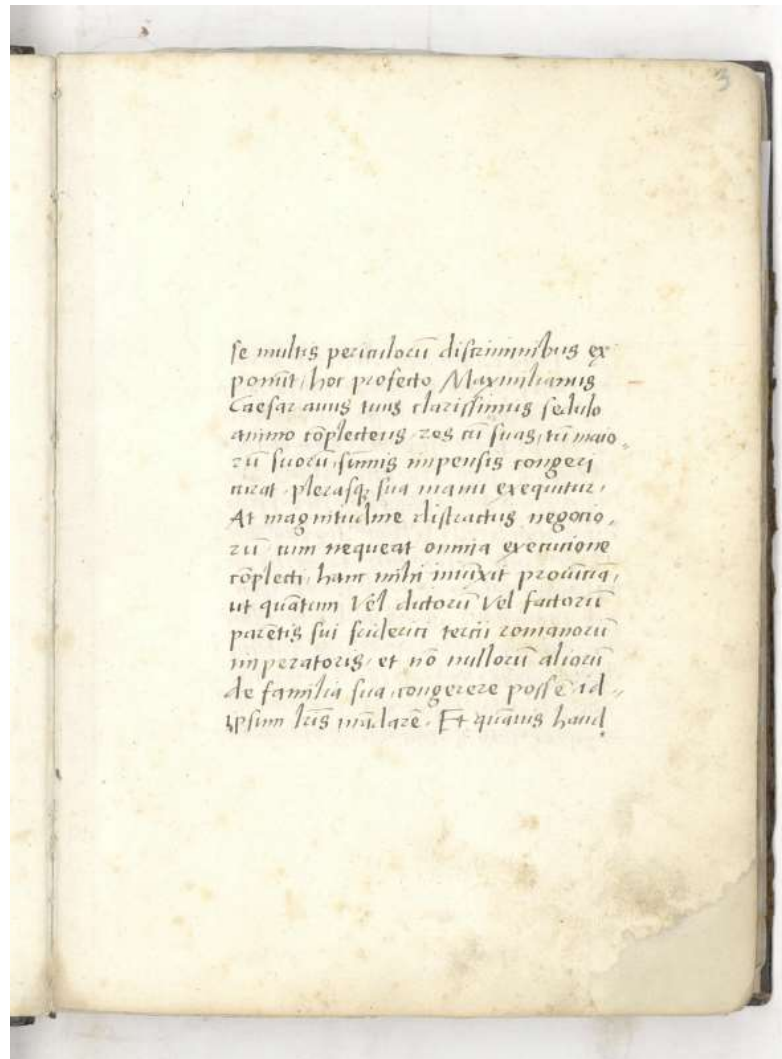 3
se multis periculorū discriminibus ex
ponūt, hoc profecto Maxmilianus
Caesar auus tuus clarissimus sedulo
animo cōplectens, res cū suas, tū maio„
rū suorū, sūmis impensis congeri
curat, plerasq; sua manu exequitur,
At magnitudine distractus negocio„
rū cum nequeat omnia execucione
cōplecti, hanc mihi iniūxit prouīciā,
ut quātum vel dictorū vel factorū
parētis sui friderici tercii romanorū
imperatoris, et nō nullorū aliorū
de familia sua, congerere possē id„
ipsum lr̄is mādarē. Et quāuis haud